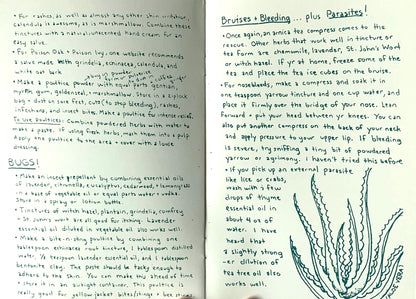 • For rashes, as well as almost any other skin irritator,
calendula is awesome, as is marshmallow. Combine these
tinctures with a natural, unscented hand cream for an
easy salve.
• For Poison Oak + Poison Ivy, one website recommends
a salve made with grindela, echinacea, calendula, and
white oak bark
• Make a poultice powder with equal parts gentian,
myrrh gum, goldenseal, + marshmallow. Store in a ziplock
bag + dust on sore feet, cuts (to stop bleeding), rashes,
infections, and insect bites. Make a poultice for intense cases.
To use poultices: Combine powdered herbs with water to
make a paste. If using fresh herbs, mash them into a pulp.
Apply the poultice to the area + cover with a loose
dressing.
BUGS!
• Make an insect repellant by combining essential oils
of lavender, citronella, eucalyptus, cedarwood, + lemongrass
in a base of vegetable oil or equal parts water + vodka.
Store in a spray or lotion bottle.
• Tinctures of witch hazel, plantain, grindelia, comfrey
St. John's wort are all good for itching. Lavender
essential oil diluted in vegetable oil also works well.
• Make a bite-n-sting poultice by combining one
tablespoon echinacea root tincture, 1 tablespoon distilled
water, 1/8 teaspoon lavender essential oil, and 1 tablespoon
bentonite clay. The paste should be tacky enough to
adhere to the skin. You can make this ahead of time
+ store it in an airtight container. This poultice is
really great for yellow-jacket bites/stings + bee stings
Bruises + Bleeding ... plus Parasites!
• Once again, an arnica tea compress comes to the
rescue. Other herbs that work well in tincture or
tea form are chamomile, lavender, St. John's Wort
or witch hazel. If yr at home, freeze some of the
tea and place the tea ice cubes on the bruise.
• For nosebleeds, make a compress and soak it in
one teaspoon yarrow tincture and one cup water, and
place it firmly over the bridge of your nose. Lean
forward + put your head between yr knees. You can
also put another compress on the back of your neck
and apply pressure to your upper lip. If bleeding
is severe, try sniffing a tiny bit of powdered
yarrow or agrimony. I haven't tried this before
• If you pick up an external parasite
like lice or crabs,
wash with a few
drops of thyme
essential oil in
about 4 oz of
water. I have
heard that
a slightly strong
-er dilution of
tea tree oil also
works well.
ALOE VERA